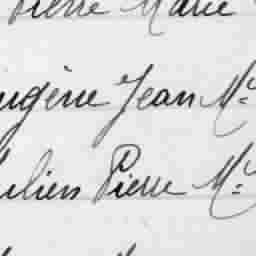 Pierre Marie
Eugène Jean M.
Julien Pierre M.